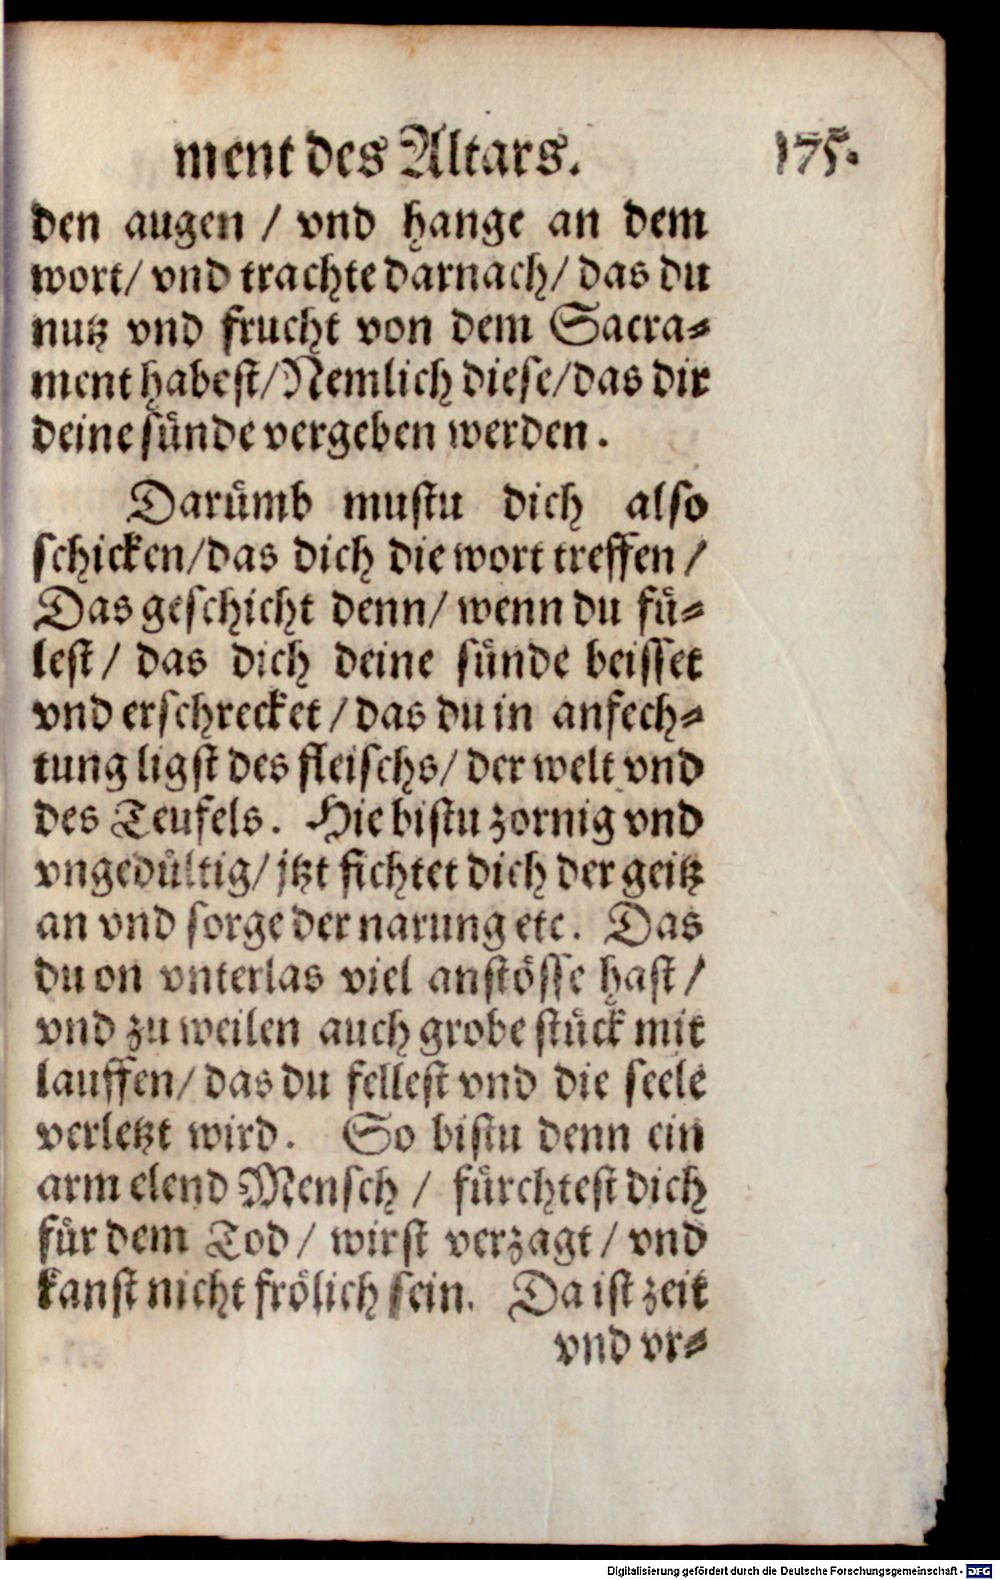 ment des Altars. 175.
den augen / vnd hange an dem
wort/ vnd trachte darnach/ das du
nutz vnd frucht von dem Sacra-
ment habest/Nemlich diese/das dir
deine sünde vergeben werden.
Darümb mustu dich also
schicken/das dich die wort treffen /
Das geschicht denn/ wenn du fü-
lest / das dich deine sünde beisset
vnd erschrecket / das du in anfech-
tung ligst des fleischs/ der welt vnd
des Teufels. Hie bistu zornig vnd
vngedültig/ jtzt fichtet dich der geitz
an vnd sorge der narung etc. Das
du on vnterlas viel anstösse hast /
vnd zu weilen auch grobe stück mit
lauffen/ das du fellest vnd die seele
verletzt wird. So bistu denn ein
arm elend Mensch / fürchtest dich
für dem Tod / wirst verzagt / vnd
kanst nicht frölich sein. Da ist zeit
vnd vr-
Digitalisierung gefördert durch die Deutsche Forschungsgemeinschaft - DFG